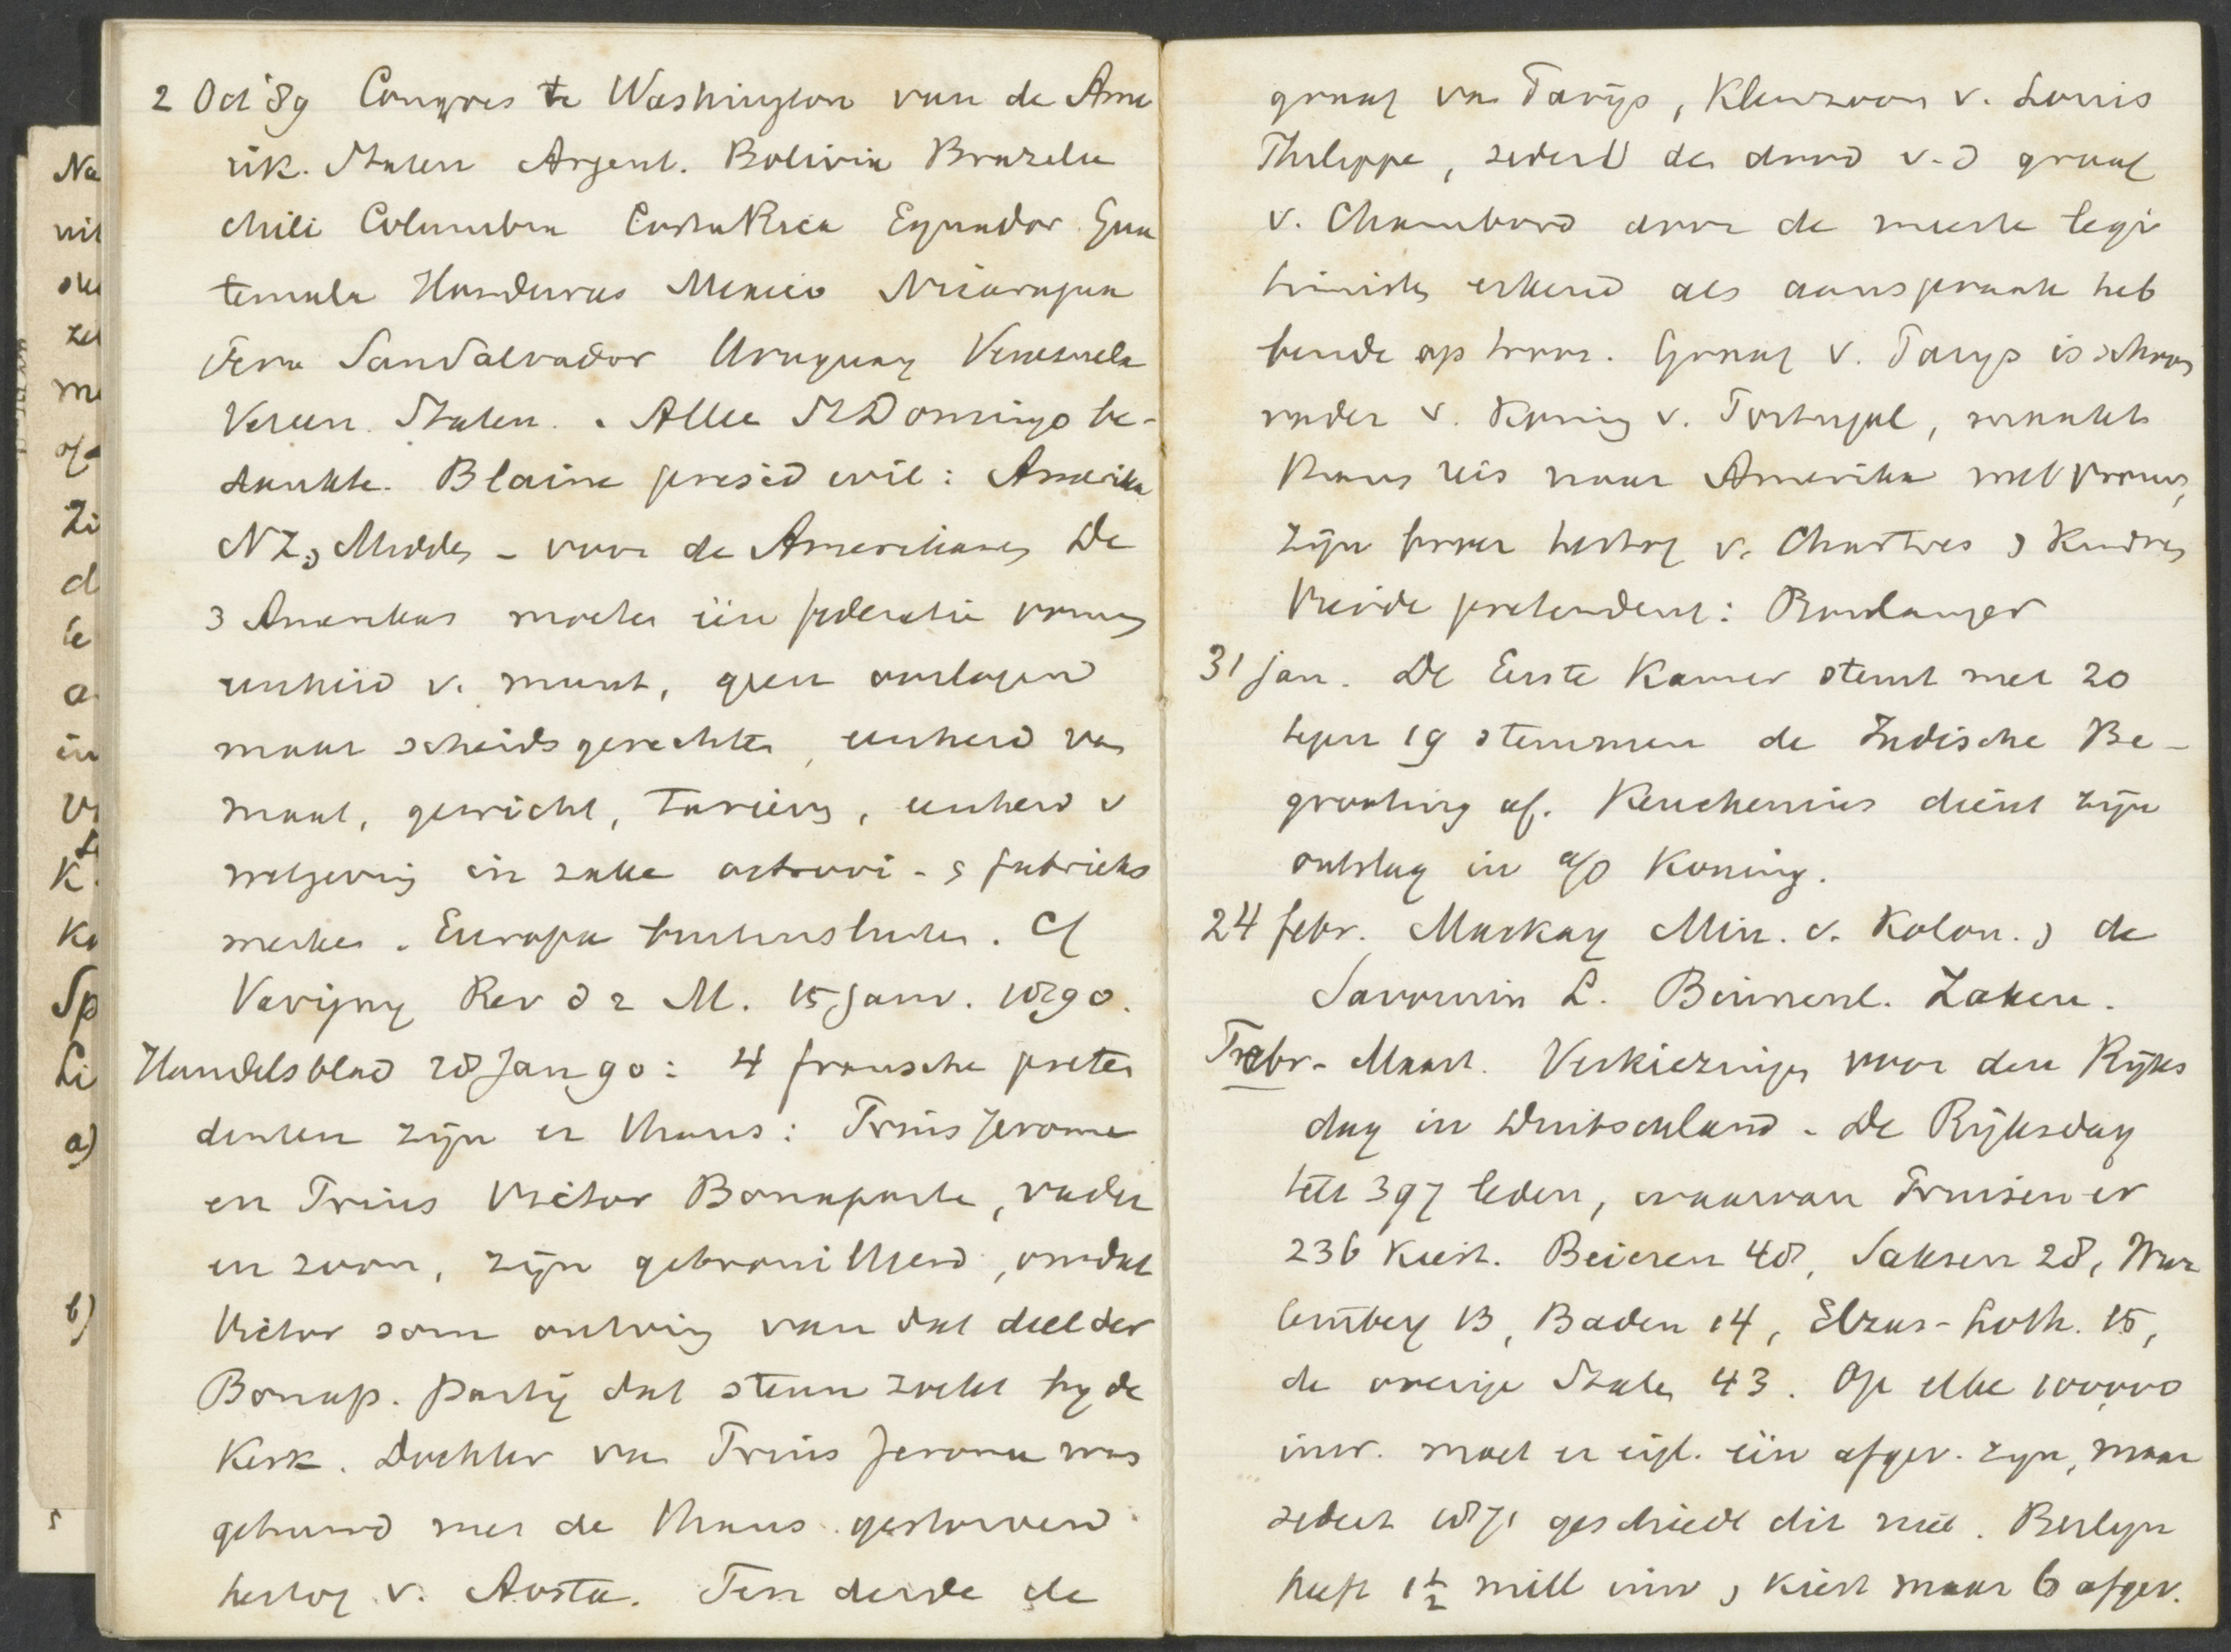 2 Oct '89 Congres te Washington van de Ame
rik. Staten Argent. Bolivia Brazelie
Chili Columbia CostaRica Equador Gua
temala Honduras Mexico Nicaragua
Peru SanSalvador Uruguay Venezuela
Vereen. Staten. Alleen StDomingo be-
dankte. Blaine presid wil: Amerika
NZ, Midden - voor de Amerikanen De
3 Amerikas moeten één federatie vormen
eenheid v. munt, geen oorlogen
maar scheidsgerechten, eenheid van
maat, gewicht, tarieven, eenheid v
wetgeving in zake octrooi- & fabrieks
merken. Europa buitensluiten. Cf
Varigny Rev d 2 M. 15 Janv. 1890.
Handelsblad 28 Jan 90: 4 fransche preten
denten zijn er thans: Prins Jerome
en Prins Victor Bonaparte, vader
en zoon, zijn gebrouilleerd, omdat
Victor som ontving van dat deel der
Bonap. partij dat steun zoekt by de
Kerk. Dochter van Prins Jerome was
getrouwd met de thans gestorven
hertog v. Aosta. Ten derde de
Na
uit
ze
me
of
Zi
d
te
a
in
V
K.
Ka
Sp
Li
a)
b)
graaf van Parijs, Kleinzoon v. Louis
Philippe, sedert den dood v. d graaf
v. Chambord door de meeste legi
timisten erkend als aanspraak heb
bende op troon. Graaf v. Parijs is schoon
vader v. Koning v. Portugal, maakt
thans reis naar Amerika met vrouw,
zijn broer hertog v. Chartres & kinderen
Vierde pretendent: Boulanger
31 jan. De Eerste Kamer stemt met 20
tegen 19 stemmen de Indische Be-
grooting af. Keuchenius dient zijn
ontslag in a/d Koning.
24 febr. Mackay Min. v. Kolon. & de
Savornin L. Binnenl. Zaken.
Febr- Maart. Verkiezingen voor den Ryks
dag in Duitschland. De Rijksdag
telt 397 leden, waarvan Pruisen er
236 kiest. Beieren 48, Saksen 28, Wur
temberg 13, Baden 14, Elzas-Loth. 15,
de overige Staten 43. Op elke 100,000
inw. moet er eigl. één afgev. zyn, maar
sedert 1871 geschiedt dit niet. Berlyn
heeft 1½ mill inw & kiest maar 6 afgev.